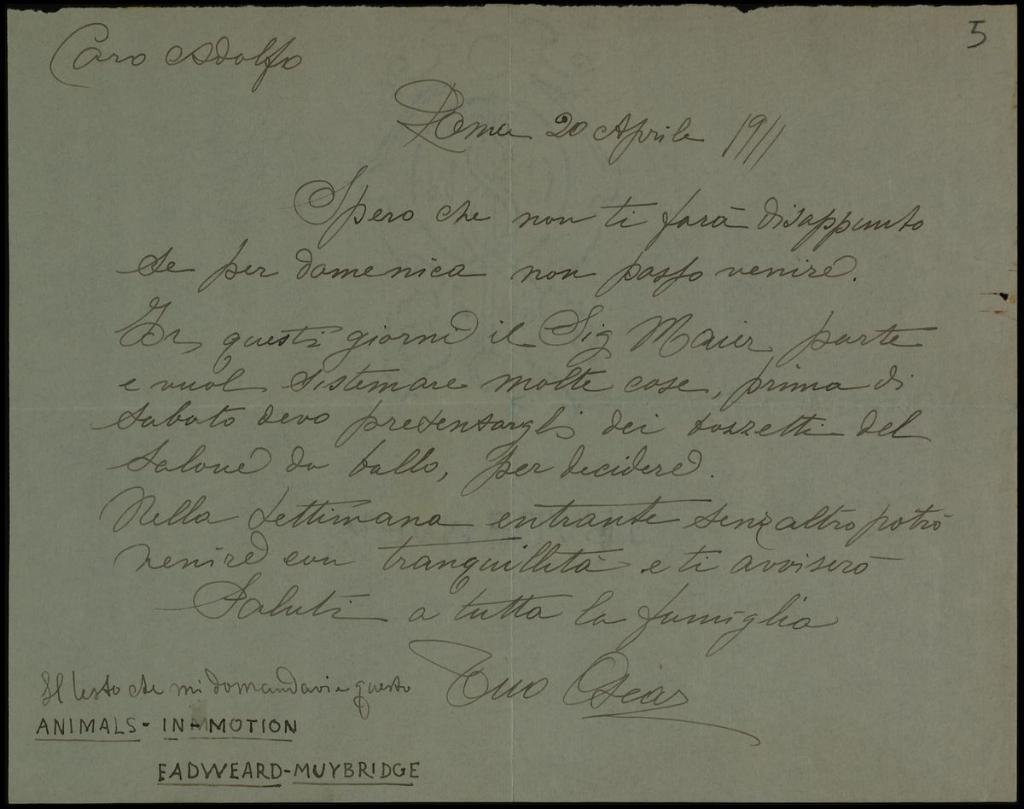 5
Caro Adolfo
Roma 20 Aprile 1911
Spero che non ti farà disappunto
se per domenica non posso venire.
In questi giorni il Sig Maier parte
e vuol sistemare molte cose, prima di
sabato devo presentargli dei bozzetti del
salone da ballo, per decidere.
Nella settimana entrante senz'altro potrò
venire con tranquillità e ti avviserò
Saluti a tutta la famiglia
Tuo Oscar
Il testo che mi domandavi è questo
ANIMALS-IN-MOTION
EADWEARD-MUYBRIDGE